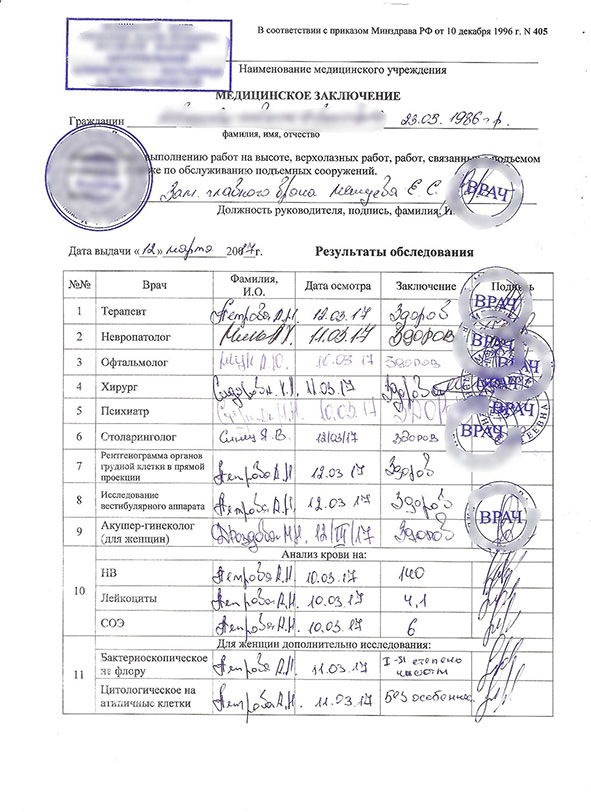 В соответствии с приказом Минздрава РФ от 10 декабря 1996 г. N 405
Наименование медицинского учреждения
МЕДИЦИНСКОЕ ЗАКЛЮЧЕНИЕ
Гражданин 23.03. 1986 г.
фамилия, имя, отчество
выполнению работ на высоте, верхолазных работ, работ, связанных с подъемом
же по обслуживанию подъемных сооружений.
Зам. главного врача Е. С.
ВРАЧ
Должность руководителя, подпись, фамилия, И.
Дата выдачи « 12 » марта 2017г. Результаты обследования
№№ Врач Фамилия, И.О. Дата осмотра Заключение Подпись
ВРАЧ
1 Терапевт Петрова А.Н. 12.03.17 Здоров
2 Невропатолог 11.03.17 Здоров
ВРАЧ
3 Офтальмолог 10.03 17 Здоров
ВРАЧ
4 Хирург Сидорова 11.03.17 Здоров
ВРАЧ
5 Психиатр 10.03.17
ВРАЧ
6 Столаринголог Я.В. 12/03/17 Здоров
7 Рентгенограмма органов грудной клетки в прямой проекции Петрова А.Н 12.03.17 Здоров
8 Исследование вестибулярного аппарата Петрова А.Н. 12.03.17 Здоров
ВРАЧ
9 Акушер-гинеколог (для женщин) Дроздова М.Н. 12/III/17 Здорова
10 Анализ крови на:
НВ Петрова А.Н. 10.03.17 140
Лейкоциты Петрова А.Н. 10.03.17 4,1
СОЭ Петрова А.Н. 10.03.17 6
11 Для женщин дополнительно исследования:
Бактериоскопическое на флору Петрова А.Н. 11.03.17 I-я степень чистоты
Цитологическое на атипичные клетки Петрова А.Н. 11.03.17 Без особеннос.